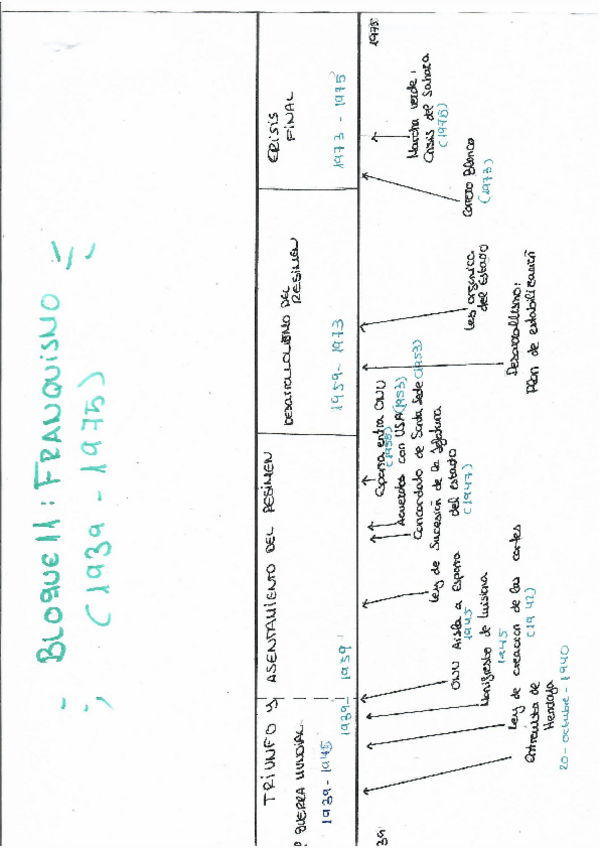 BLOQUE 11: FRANQUISMO
(1939 - 1975)
TRIUNFO Y ASENTAMIENTO DEL REGIMEN
1939 - 1959
GUERRA MUNDIAL
1939-1945
DESARROLLOLISMO DEL
REGIMEN
1959-1973
CRISIS
FINAL
1973 - 1975
39
1975
Entrevista de
Hendaya
20-octubre-1940
Ley de creación de las cortes
(1942)
Manifiesto de Luisiana
1945
ONU Aisla a España
1945
Ley de Sucesión de la Jefatura
del estado
(1947)
Concordato de Santa Sede (1953)
Acuerdos con USA (1953)
España entra ONU
Desarrollismo:
Plan de estabilización
Ley orgánica
del Estado
Carrero Blanco
(1973)
Marcha verde:
Crisis del Sahara
(1975)